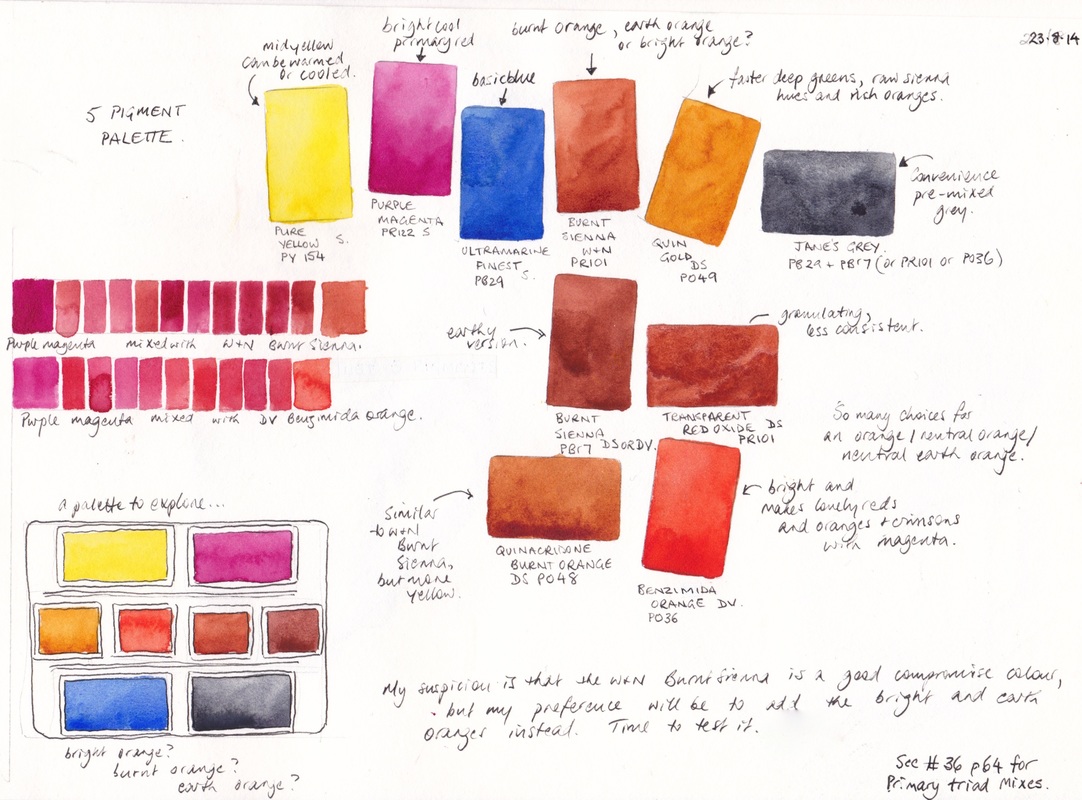 23·8·14
5 PIGMENT
PALETTE.
mid yellow
can be warmed
or cooled.
bright cool
primary red
basic blue
burnt orange, earth orange
or bright orange?
faster deep greens, raw sienna
hues and rich oranges.
Convenience
pre-mixed
grey.
PURE
YELLOW S.
PY 154
PURPLE
MAGENTA
PR122 S
ULTRAMARINE
FINEST S.
PB29
BURNT
SIENNA
W+N
PR101
QUIN
GOLD DS
PO49
JANE'S GREY.
PB29 + PBr7 (or PR101 or PO36)
Purple magenta mixed with W+N Burnt Sienna.
Purple magenta mixed with DV Benzimida Orange.
earthy
version.
granulating,
less consistent.
BURNT
SIENNA
PBr7 DS OR DV.
TRANSPARENT
RED OXIDE DS
PR101
So many choices for
an orange/neutral orange/
neutral earth orange.
Similar
to W+N
Burnt
Sienna,
but more
yellow.
QUINACRIDONE
BURNT ORANGE
DS PO48
bright and
makes lovely reds
and oranges + crimsons
with magenta.
BENZIMIDA
ORANGE DV.
PO36
a palette to explore...
bright orange?
burnt orange?
earth orange?
My suspicion is that the W+N Burnt Sienna is a good compromise colour,
but my preference will be to add the bright and earth
oranges instead. Time to test it.
See #36 p64 for
Primary triad Mixes.